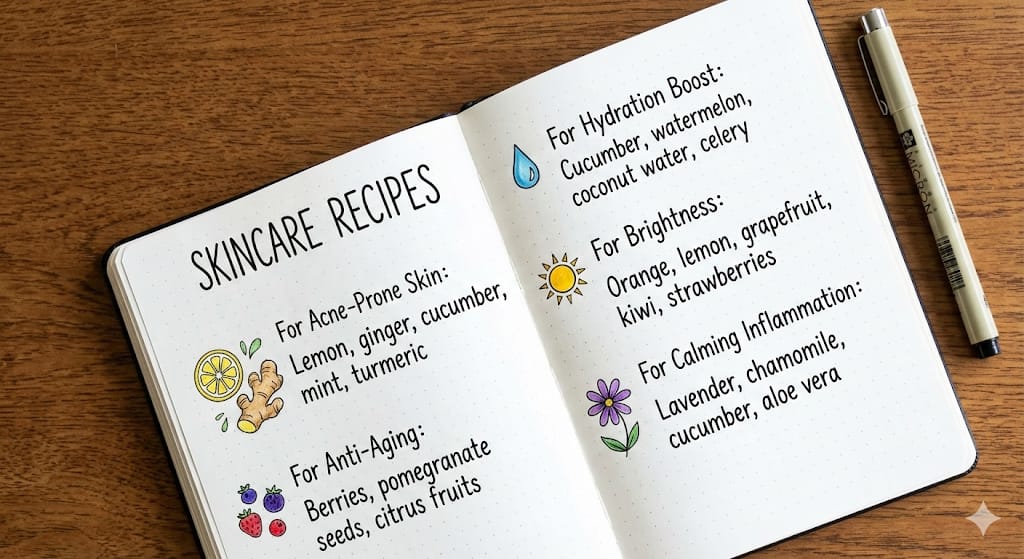 SKINCARE RECIPES
For Acne-Prone Skin:
Lemon, ginger, cucumber,
mint, turmeric
For Anti-Aging:
Berries, pomegranate
seeds, citrus fruits
For Hydration Boost:
Cucumber, watermelon,
coconut water, celery
For Brightness:
Orange, lemon, grapefruit,
kiwi, strawberries
For Calming Inflammation:
Lavender, chamomile,
cucumber, aloe vera
MICRON